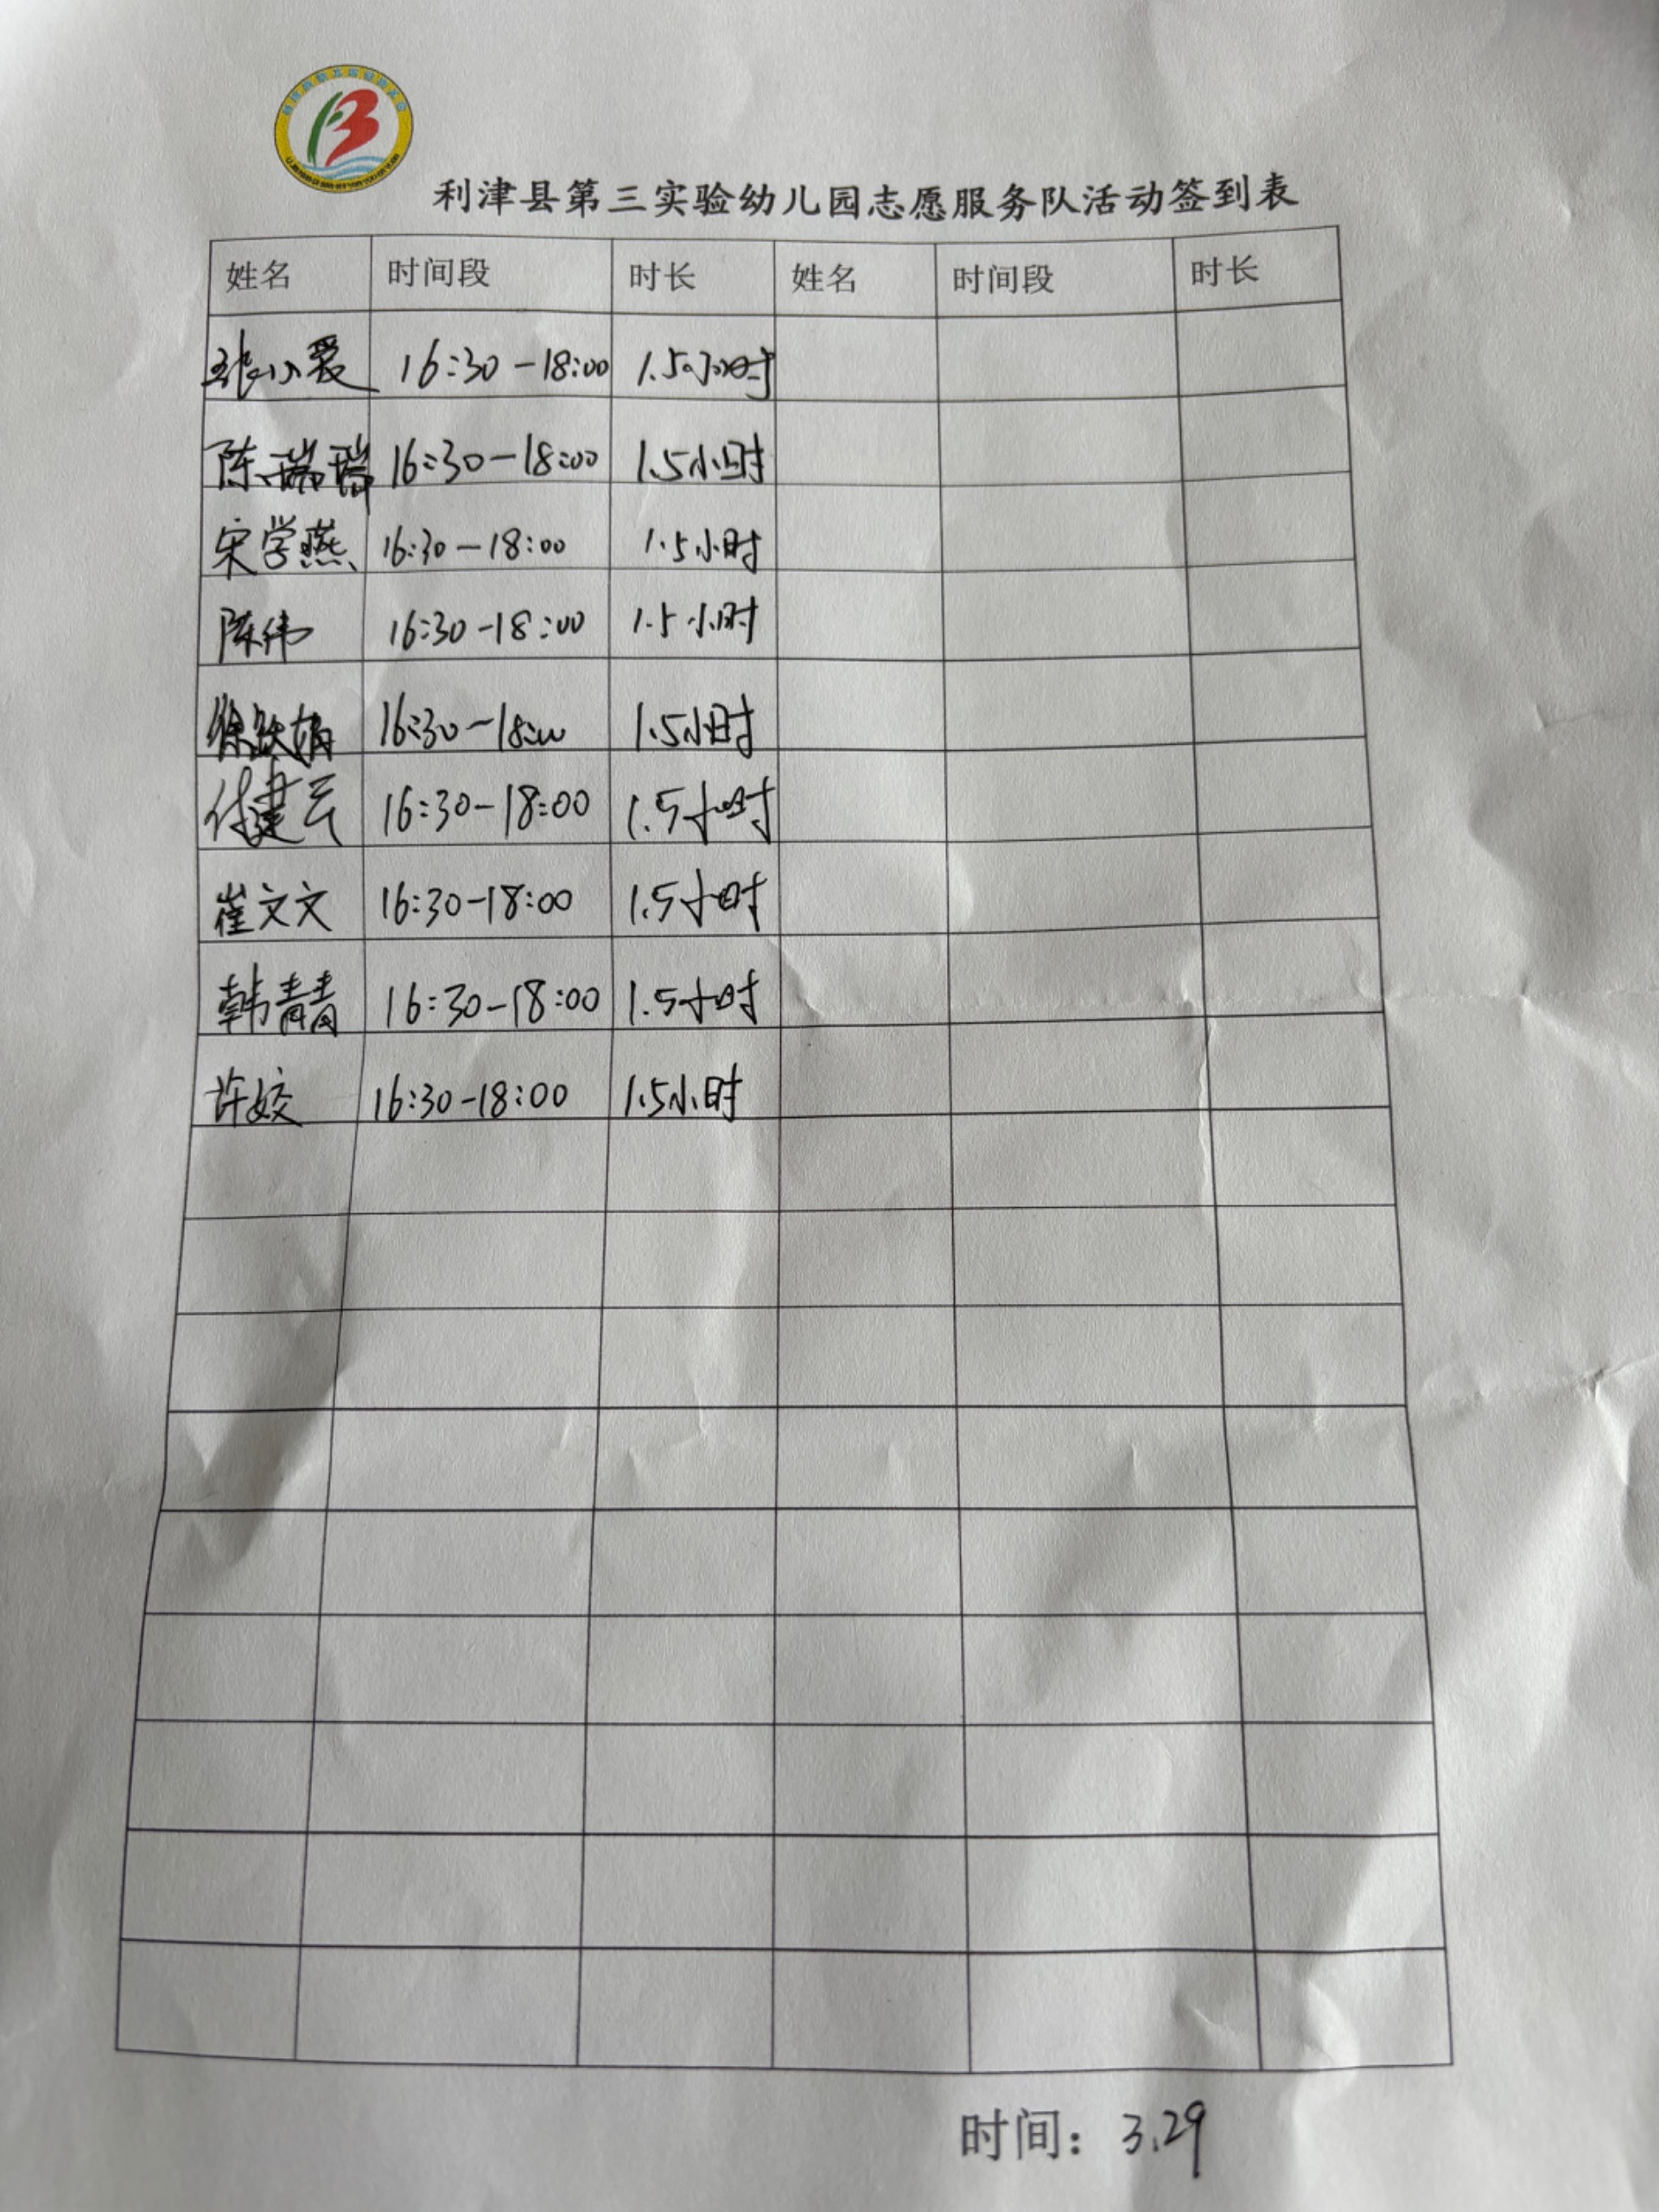 利津县第三实验幼儿园志愿服务队活动签到表
姓名 时间段 时长 姓名 时间段 时长
张小爱 16:30-18:00 1.5小时
陈瑞瑞 16:30-18:00 1.5小时
宋学燕 16:30-18:00 1.5小时
陈伟 16:30-18:00 1.5小时
徐 娟 16:30-18:00 1.5小时
付建云 16:30-18:00 1.5小时
崔文文 16:30-18:00 1.5小时
韩青青 16:30-18:00 1.5小时
许姣 16:30-18:00 1.5小时
时间：3.29